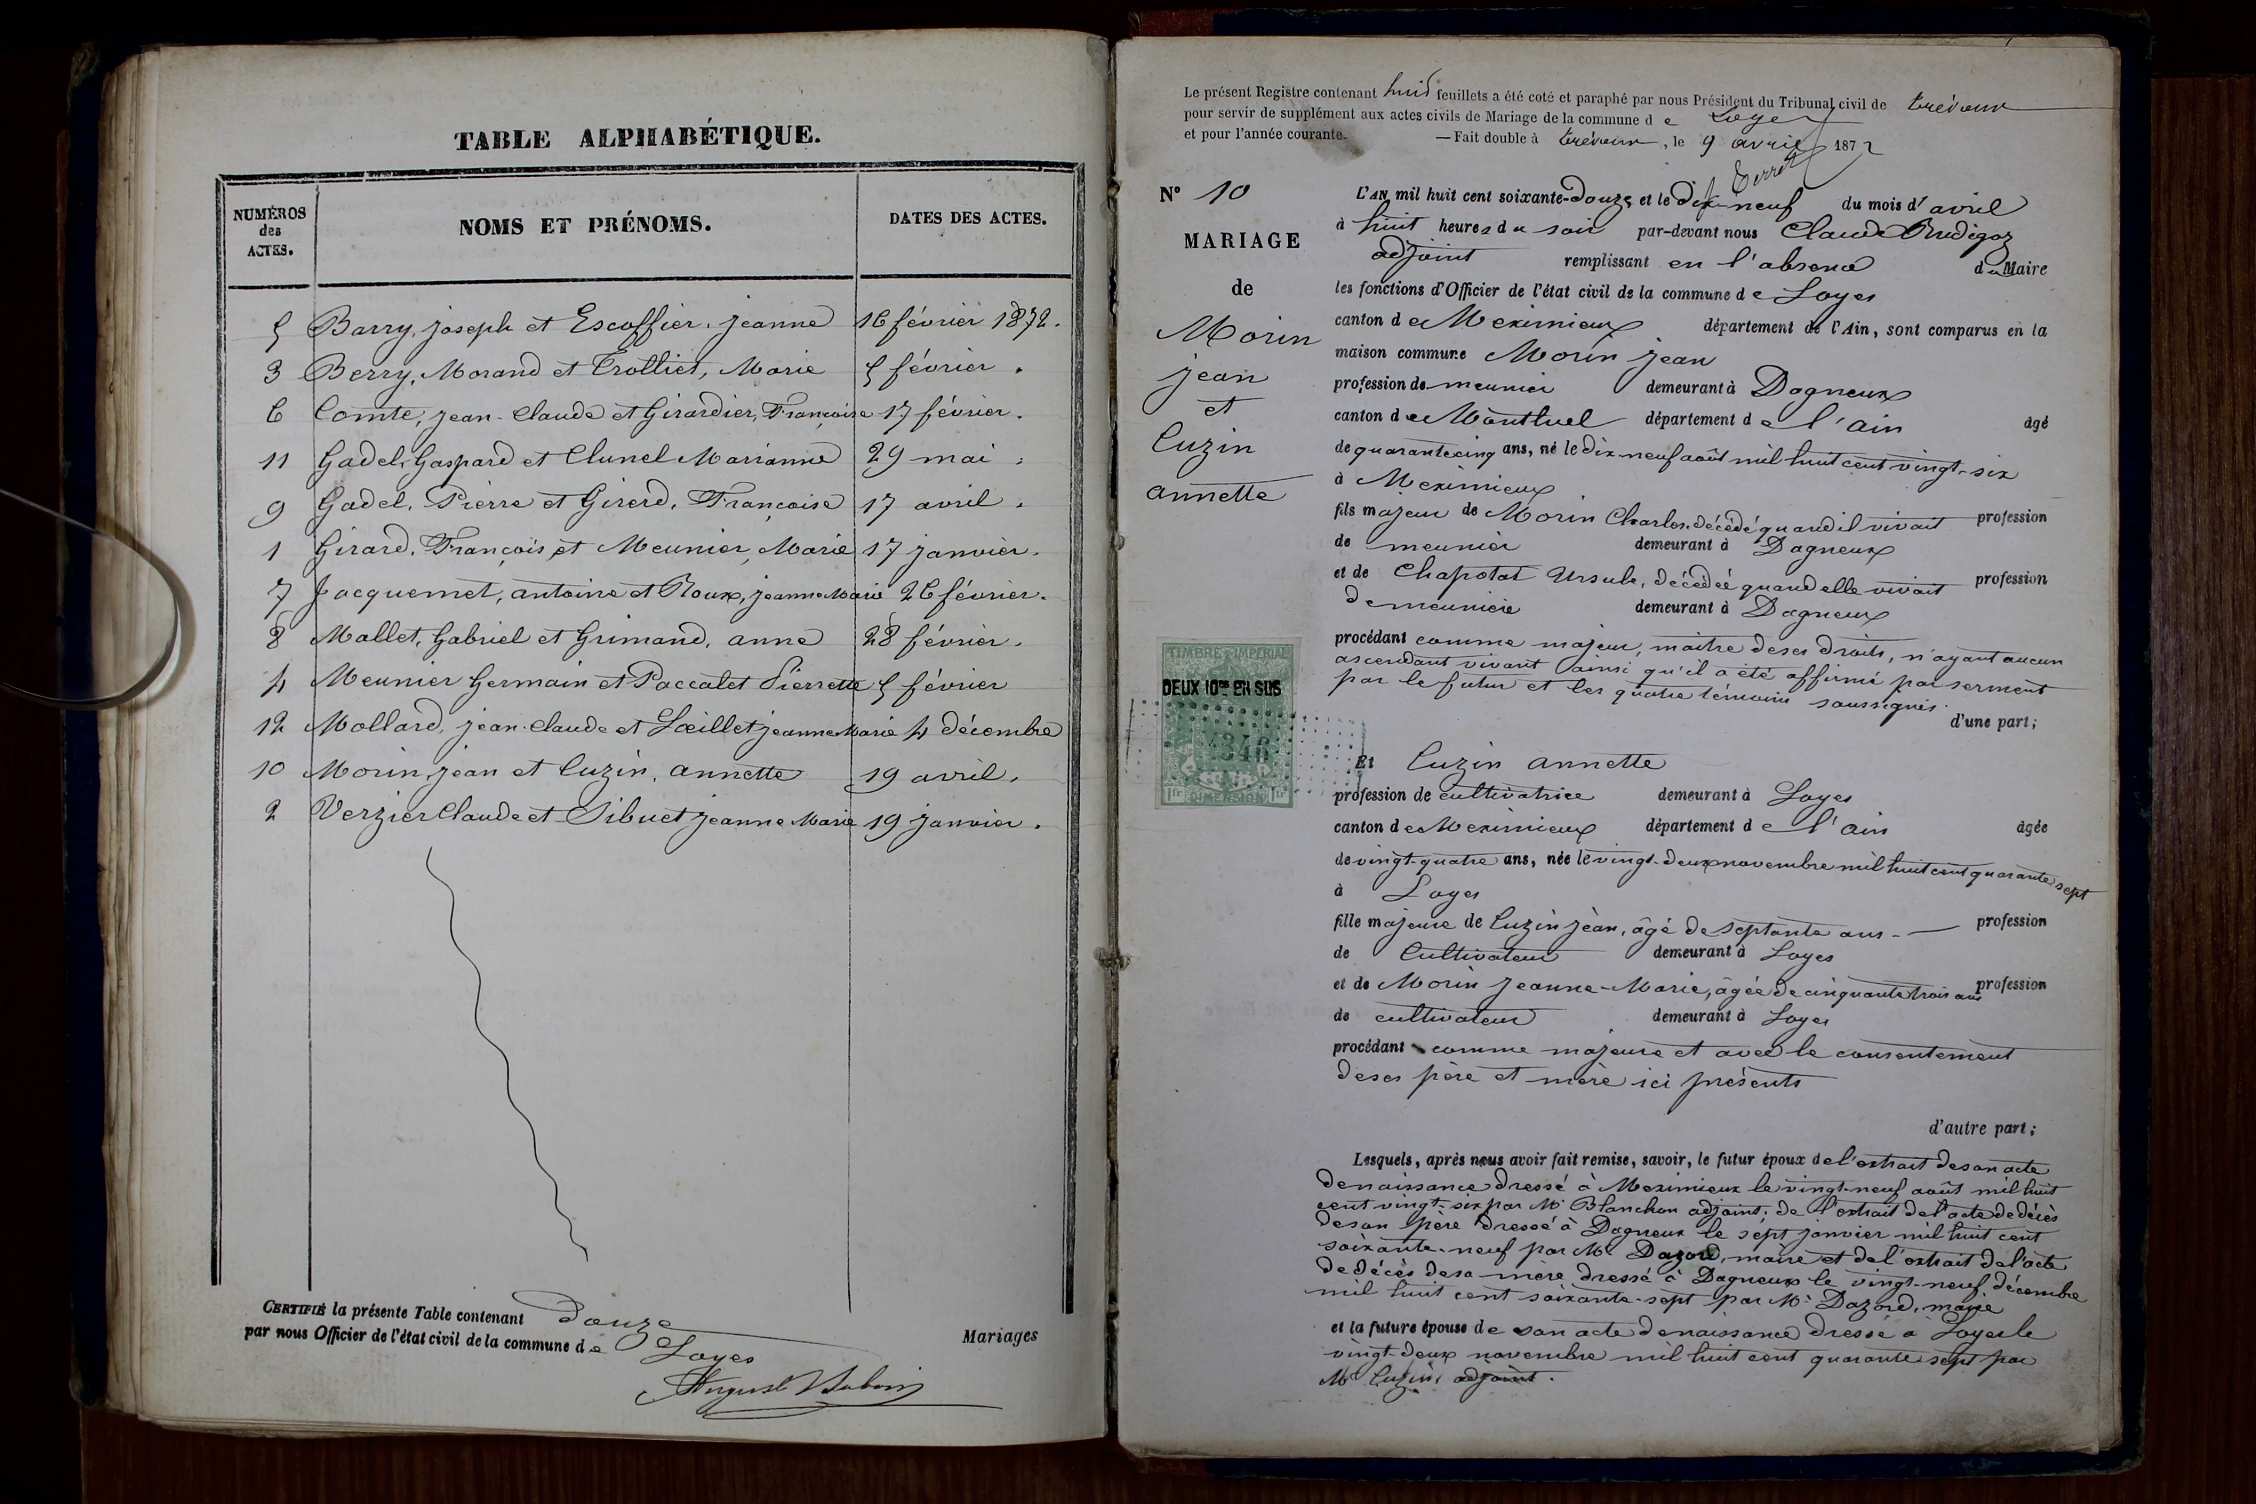 TABLE ALPHABÉTIQUE.
NUMÉROS des ACTES.
NOMS ET PRÉNOMS.
DATES DES ACTES.
5 Barry, joseph et Escoffier, jeanne 16 février 1872.
3 Berry, Morand et Trolliet, Marie 5 février.
6 Comte, jean-Claude et Girardier, Françoise 17 février.
11 Gadel, Gaspard et Clunel Marianne 29 mai.
9 Gadel, Pierre et Girerd, Françoise 17 avril.
1 Girard, François et Meunier, Marie 17 janvier.
7 Jacquemet, antoine et Roux, jeanne Marie 26 février.
8 Mallet, Gabriel et Grimand, anne 28 février.
4 Meunier Germain et Paccalet Pierrette 5 février
12 Mollard, jean-Claude et Lœillet jeanne Marie 4 décembre
10 Morin, jean et Cuzin, annette 19 avril.
2 Verzier Claude et Sibuet jeanne Marie 19 janvier.
CERTIFIÉ la présente Table contenant douze Mariages
par nous Officier de l'état civil de la commune de Loyes
Le présent Registre contenant huit feuillets a été coté et paraphé par nous Président du Tribunal civil de trévoux
pour servir de supplément aux actes civils de Mariage de la commune de Loyes
et pour l'année courante. — Fait double à trévoux, le 9 avril 1872
N° 10
MARIAGE
de
Morin
jean
et
Cuzin
annette
TIMBRE IMPÉRIAL
DEUX 10mes EN SUS
4346
1fr DIMENSION 1fr
L'AN mil huit cent soixante-douze et le dix-neuf du mois d'avril
à huit heures du soir par-devant nous Claude Rudigoz
adjoint remplissant en l'absence du Maire
les fonctions d'Officier de l'état civil de la commune de Loyes
canton de Meximieux département de l'Ain, sont comparus en la
maison commune Morin jean
profession de meunier demeurant à Dagneux
canton de Montluel département de l'ain âgé
de quarante cinq ans, né le dix-neuf août mil huit cent vingt-six
à Meximieux
fils majeur de Morin Charles, décédé quand il vivait profession
de meunier demeurant à Dagneux
et de Chapotat Ursule, décédée quand elle vivait profession
de meunière demeurant à Dagneux
procédant comme majeur, maître de ses droits, n'ayant aucun
ascendant vivant ainsi qu'il a été affirmé par serment
par le futur et les quatre témoins soussignés.
d'une part;
Et Cuzin annette
profession de cultivatrice demeurant à Loyes
canton de Meximieux département de l'ain âgée
de vingt-quatre ans, née le vingt-deux novembre mil huit cent quarante sept
à Loyes
fille majeure de Cuzin jean, âgé de septante ans profession
de Cultivateur demeurant à Loyes
et de Morin Jeanne-Marie, âgée de cinquante trois ans profession
de cultivateur demeurant à Loyes
procédant comme majeure et avec le consentement
de ses père et mère ici présents
d'autre part;
Lesquels, après nous avoir fait remise, savoir, le futur époux de l'extrait de son acte
de naissance dressé à Meximieux le vingt-neuf août mil huit
cent vingt-six par Mr Blanchon adjoint, de l'extrait de l'acte de décès
de son père dressé à Dagneux le sept janvier mil huit cent
soixante-neuf par Mr Dazord, maire et de l'extrait de l'acte
de décès de sa mère dressé à Dagneux le vingt-neuf décembre
mil huit cent soixante-sept par Mr Dazord, maire
et la future épouse de son acte de naissance dressé à Loyes le
vingt-deux novembre mil huit cent quarante sept par
Mr Cuzin, adjoint.